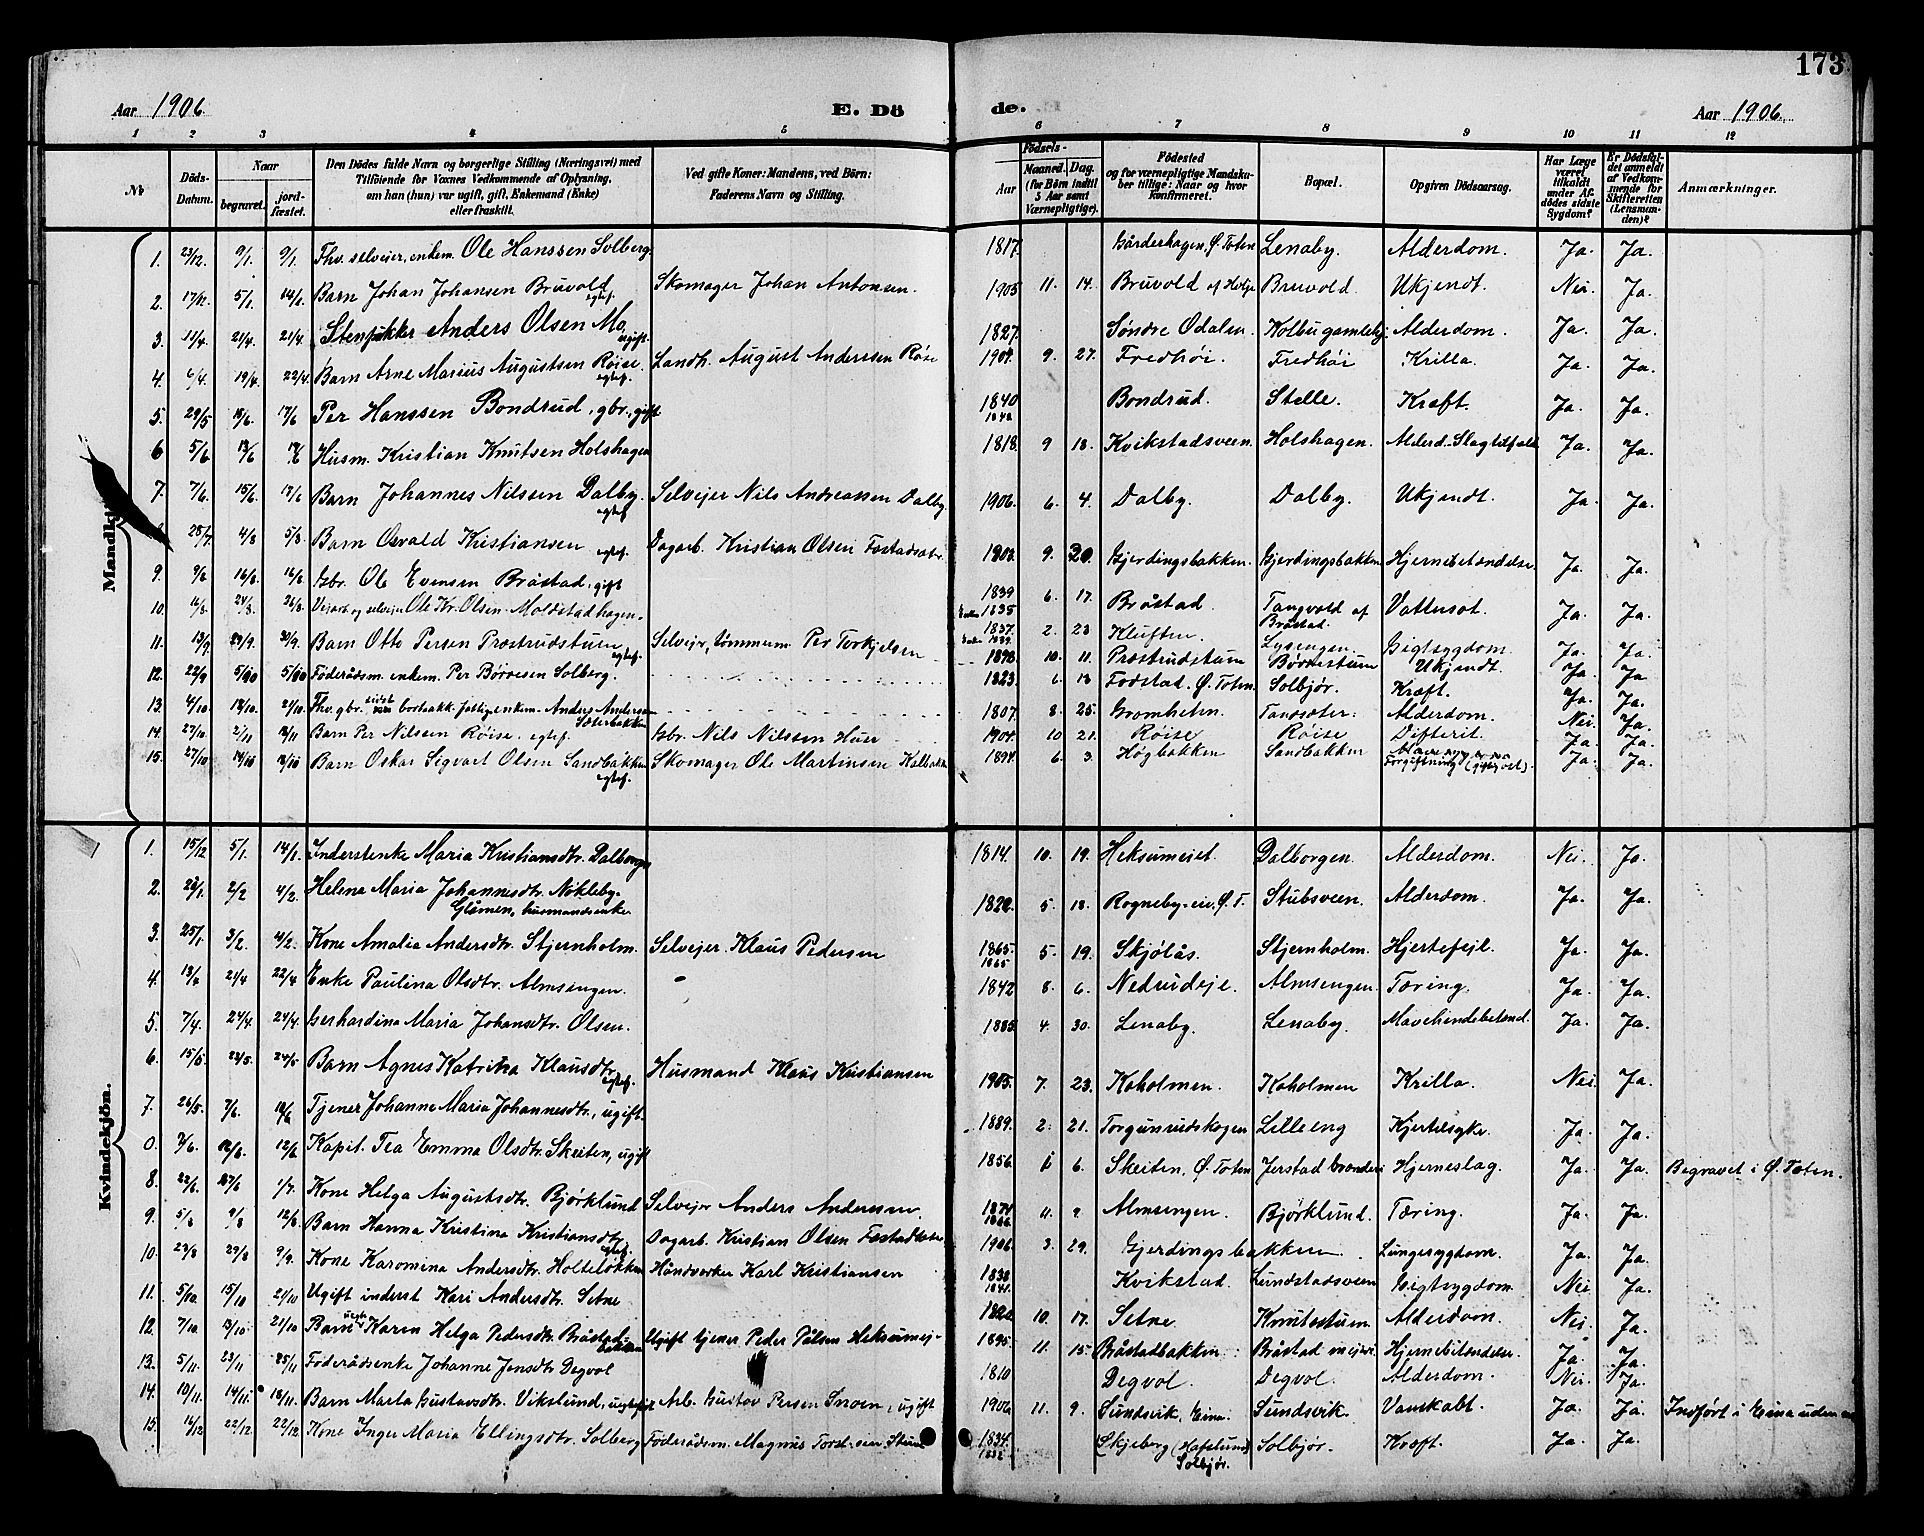 173
Aar 1906 E. Dö de. Aar 1906
1 2 3 4 5 6 7 8 9 10 11 12
No
Döds-Datum.
Naar
begravet. jordfæstet.
Den Dödes fulde Navn og borgerlige Stilling (Næringsvei) med
Tilföiende for Voxnes Vedkommende af Oplysning,
om han (hun) var ugift, gift, Enkemand (Enke)
eller fraskilt.
Ved gifte Koner: Mandens, ved Börn:
Faderens Navn og Stilling.
Födsels-
Aar Maaned. Dag.
(for Börn indtil 5 Aar samt Værnepligtige).
Födested
og for værnepligtige Mandskaber tillige: Naar og hvor konfirmeret.
Bopæl.
Opgiven Dödsaarsag.
Har Læge været tilkaldt under Afdödes sidste Sygdom?
Er Dödsfaldet anmeldt af Vedkommende for Skifteretten (Lensmanden)?
Anmærkninger.
Mandkjön.
1. 23/12. 9/1. 9/1. Fhv. selveier, enkem. Ole Hanssen Solberg. 1817. Gårderhagen, Ø. Toten Lenaby. Alderdom. Ja. Ja.
2. 17/12. 5/1. 14/1. Barn Johan Johansen Bruvold egtef. Skomager Johan Antonsen. 1905 11. 14. Bruvold Bruvold. Ukjendt. Nei. Ja.
3. 11/4. 21/4. 21/4. Anders Olsen Mo, ugift. 1827. Søndre Odalen. Kolbu gamlehj. Alderdom. Ja. Ja.
4. 6/4. 19/4. 22/4. Barn Arne Marius Augustsen Røise. egtef. Landh. August Anderssen Røise 1904. 9. 27. Fredhøi. Fredhøi Krilla. Ja. Ja.
5. 29/5 15/6. 17/6 Per Hanssen Bondrud, gbr., gift 1840 Bondrud. Stelle. Kræft. Ja. Ja.
6 5/6. 13/6 Husm. Kristian Knutsen Holshagen 1818. 9 18. Kvikstadsveen. Holshagen. Alderd. Slagtilfælde Ja. Ja.
7. 7/6. 15/6. 17/6 Barn Johannes Nilssen Dalby. egtef. Selvejer Nils Andreassen Dalby. 1906. 6. 4. Dalby. Dalby. Ukjendt. Ja. Ja.
28/7 4/8 5/8. Barn Osvald Kristiansen egtef. Dagarb. Kristian Olsen Fæstadsæter. 1903. 9. 20. Gjerdingsbakken. Gjerdingsbakken Hjernebetændelse. Ja. Ja.
9. 9/8 16/8. 16/8. Gbr. Ole Evensen Bråstad, gift 1839 1835 6. 17. Bråstad. Tangvold af Bråstad. Vattersot. Ja. Ja.
10. 16/8. 24/8. 26/8. Vejarb. og selvejer Ole Kr. Olsen Moldstadhagen. 1837. 2. 23 Kluften. Lysengen. Gigtsygdom. Ja. Ja.
11. 13/9. 29/9. 30/9. Barn Otto Persen Prostrudstuen egtef. Selvejer, tømmerm. Per Torkjelsen 1898. 10. 11. Prostrudstuen Børvestuen Ukjendt. Ja. Ja
12. 22/9 5/10 5/10 Föderådsm. enkem. Per Børvesen Solberg. 1823. 6. 18 Fodstad. Ø. Toten. Solbjør. Kræft. Ja. Ja.
13. 4/10. 18/10. 21/10. Fhv. gbr. sidst bortsakk. fattig enkem. Anders Andersen Sæterbakken 1807. 8. 25. Gromheten. Tandsæter. Alderdom. Nei. Ja.
14. 27/10. 2/11 18/11 Barn Per Nilssen Røise. egtef. Gbr. Nils Nilssen Huer 1904. 10 21. Røise Røise Difterit. Ja. Ja.
15. 27/10 14/10 18/10 Barn Oskar Sigvart Olsen Sandbakken egtef. Skomager Ole Martinsen Kalbakken 1894. 6. 3. Høgbakken Sandbakken Forgiftning (giftig ost). Ja. Ja.
Kvindekjön.
1. 15/12 5/1. 14/1. Inderstenke Maria Kristiansdtr. Dalborgen 1814. 10. 19. Heksumeiet. Dalborgen. Alderdom. Nei. Ja.
2. 28/1. 2/2 4/2. Helena Maria Johannesdtr. Nøkleby-Glåmen, husmandsenke 1822. 5. 18. Rogneby-eie, Ø. T. Stubsveen. Alderdom. Ja. Ja.
3. 25/1. 3/2. 4/2. Kone Amalia Andersdtr. Stjernholm. Selvejer Klaus Pedersen 1865. 1865 5. 19. Skjølås. Stjernholm. Hjertefejl. Ja. Ja.
4. 13/4 21/4 22/4 Enke Paulina Olsdtr. Almsengen. 1842 8. 6. Nedrudeje. Almsengen. Tæring. Ja. Ja.
5. 7/4. 24/4. 24/4. Gerhardina Maria Johansdtr. Olsen. 1885. 4. 30. Lenaby. Lenaby. Mavehindebetænd. Ja. Ja.
6. 15/5. 23/5. 24/5 Barn Agnes Katrina Klausdtr. egtef. Husmand Klaus Kristiansen 1905. 7. 23. Koholmen. Koholmen Krilla. Nei. Ja.
7. 26/5. 7/6. 18/6 Tjener Johanne Maria Johannesdtr., ugift. 1889. 2. 21. Torgunrudskogen Lilleeng Kjertelsyke. Ja. Ja.
0. 7/6. 12/6. 12/6 Kapit. Tea Emma Olsdtr. Skeiten, ugift 1856. 6. Skeiten, Ø. Toten Jerstad brænderi Hjerneslag. Ja. Ja. Begravet i Ø. Toten.
8. 22/6. 27/6 1/7. Kone Helga Augustsdtr. Bjørklund Selvejer Anders Anderssen. 1874 1866. 11. 9. Almsengen. Bjørklund. Tæring. Ja. Ja.
9. 5/8 9/8 12/8. Barn Hanna Kristina Kristiansdtr. egtef. Dagarb. Kristian Olsen Fæstadsæter 1906. 3. 29. Gjerdingsbakken Lungesygdom. Ja. Ja.
10. 23/8 29/8 9/9. Kone Karomina Andersdtr. Holteløkken Håndverker Karl Kristiansen 1838 1841. Kvikstad. Lundstadsveen Gigtsygdom Nei Ja.
11. 5/10 15/10 21/10 Ugift inderst Kari Andersdtr. Setne 1820. 10. 17. Setne. Knutestuen. Alderdom. Nei. Ja.
12. 7/10 13/10 21/10 Barn Karen Helga Pedersdtr. Bråstad-bakken Ugift tjener Peder Pålsen Heksumej. 1895. 11. 15. Bråstadbakken Bråstad mejeri. Hjernebetændelse. Ja. Ja.
13. 5/11. 23/11 25/11 Föderådsenke Johanne Jensdtr. Degvol 1810 Degvol. Degvol. Alderdom. Nei. Ja.
14. 10/11. 14/11. 18/11. Barn Marta Gustavsdtr. Vikslund, uegtef. Arb. Gustav Persen Snoen, ugift 1906 11. 9. Sundsvik, Eina. Sundsvik. Vanskabt. Ja. Ja. Indført i Eina uden
15. 16/12 22/12. 22/12 Kone Inger Maria Ellingsdtr. Solberg Föderådsm. Magnus 1834. 1832 Skjeberg (Hafslund) Solbjør. Solbjør. Kræft. Ja. Ja.